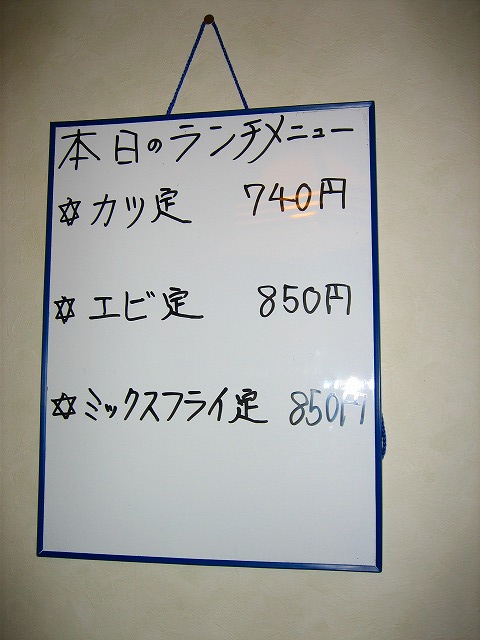 本日のランチメニュー
✡カツ定 740円
✡エビ定 850円
✡ミックスフライ定 850円